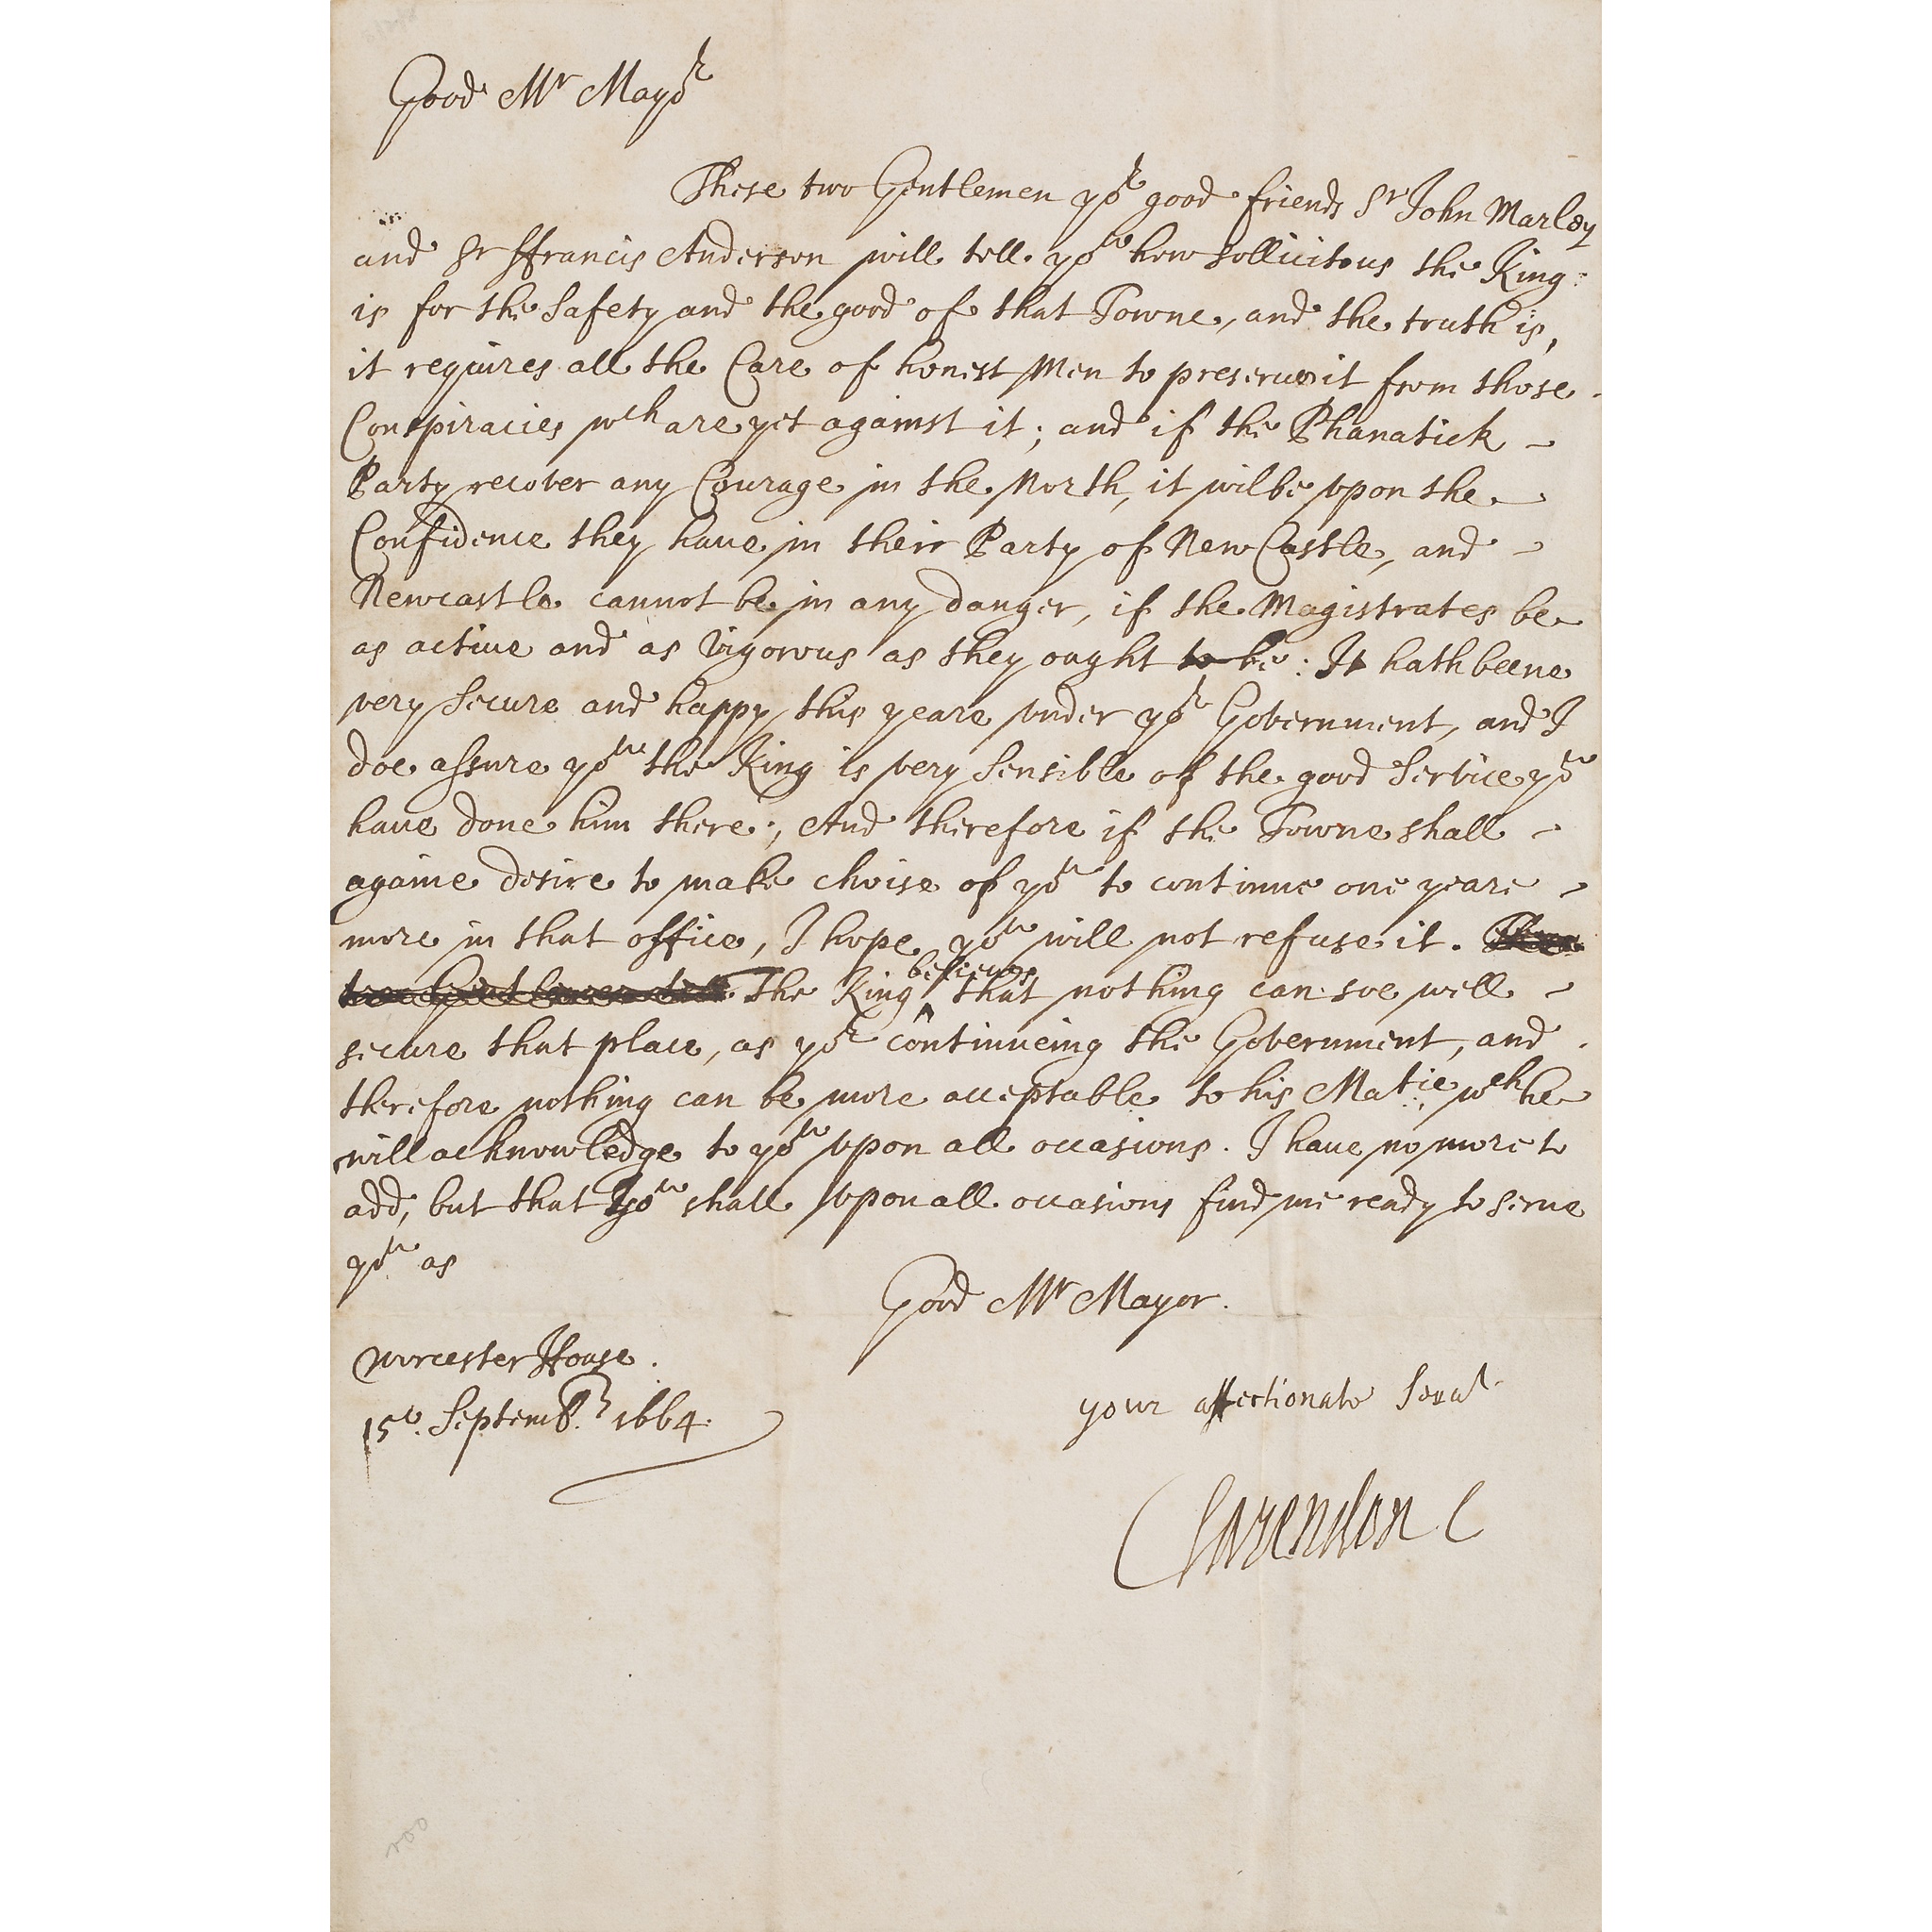 Good Mr Mayor
These two Gentlemen yor good friends Sr John Marley
and Sr ffrancis Anderson will tell you how sollicitous the King
is for the Safety and the good of that Towne, and the truth is,
it requires all the Care of honest Men to preserue it from those
Conspiracies wch are yet against it; and if the Phanatick -
Party recover any Courage in the North, it wilbe vpon the
Confidence they haue in their Party of NewCastle, and -
Newcastle cannot be in any danger, if the Magistrates be
as actiue and as Vigorous as they ought to be: It hath beene
very Secure and happy this yeare vnder yor Government, and I
doe assure you the King is very Sensible of the good Service you
haue done him there; And therefore if the Towne shall -
againe desire to make choise of you to continue one yeare -
more in that office, I hope you will not refuse it. These
two Gentlemen tell The King believes that nothing can soe well -
secure that place, as yor continueing the Government, and
therefore nothing can be more acceptable to his Matie wch he
will acknowledge to you vpon all occasions. I haue no more to
add, but that you shall vpon all occasions find me ready to serue
you as
Good Mr Mayor.
Worcester House.
15th Septembr 1664.
your affectionate Servt
Clarendon C
200